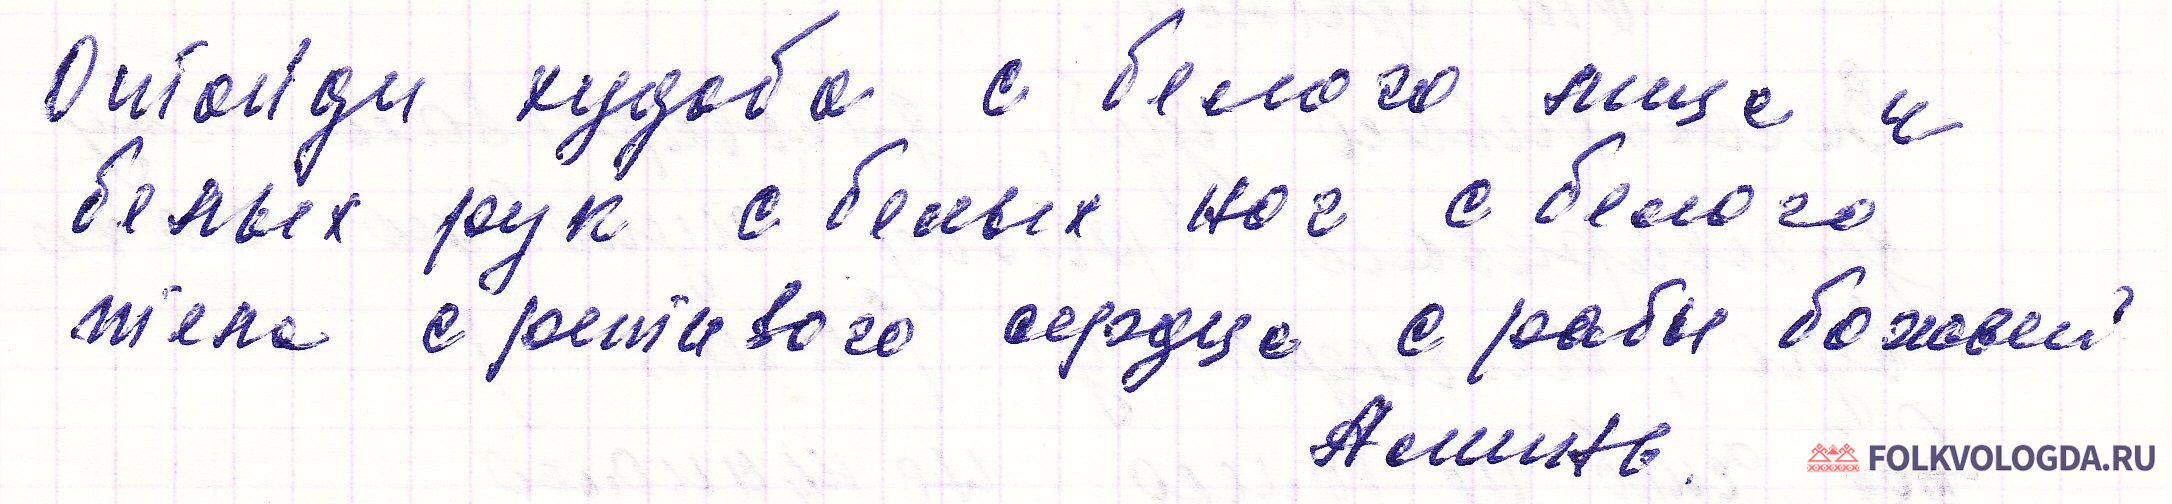 Отойди худоба с белого лица и
белых рук с белых ног с белого
тела с ретивого сердца с рабы божьей
Аминь.
FOLKVOLOGDA.RU